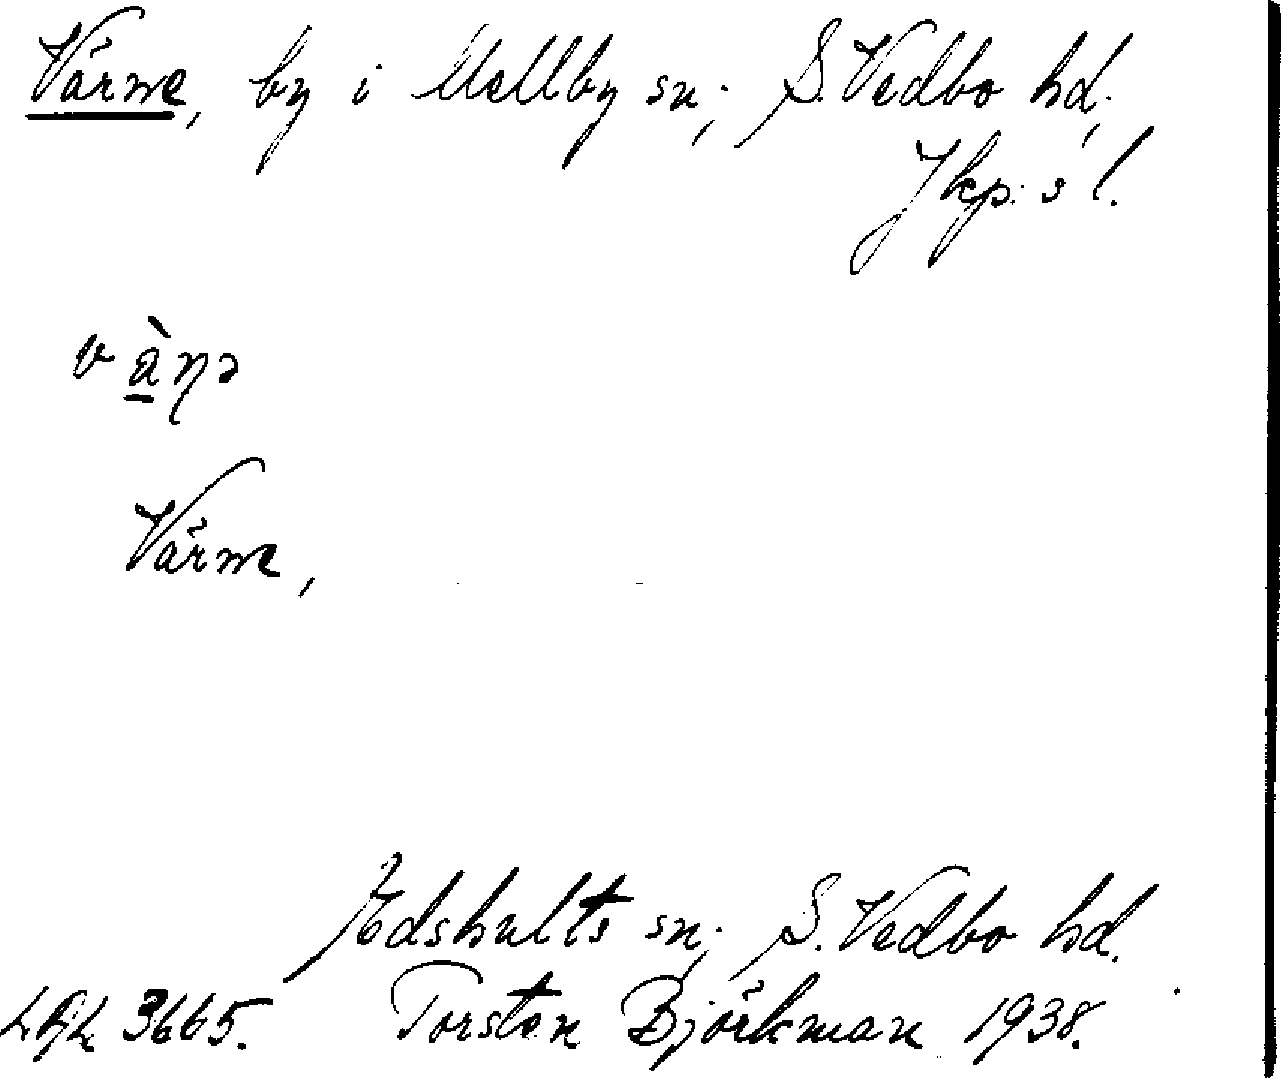 Värne, by i Mellby sn., S. Vedbo hd.,
Jkp:s l.
Värne,
Edshults sn., S. Vedbo hd.
3665. Torsten Björkman 1938.